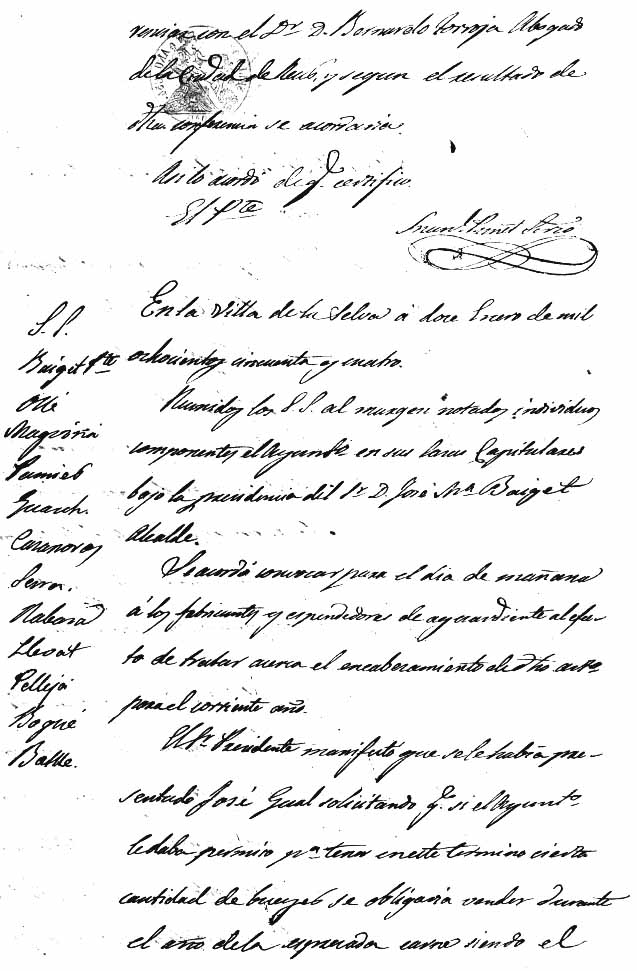 con el Sr. D. Bernardo Torroja Abogado
de la Ciudad de Reus, y segun el resultado de
dha conferencia se acordaria.
Asi lo acordó de q. certifico.
El Pte
S. S.
Baiget Pte
Ollé
Magriñá
Pamies
Guasch.
Casanovas
Serra.
Rabasá
Llevat
Pellejá
Bogué
Batlle.
En la Villa de la Selva á doce Enero de mil
ochocientos cincuenta y cuatro.
Reunidos los S. S. al margen notados individuos
componentes el Ayunto en sus Casas Capitulares
bajo la presidencia del Sr. D. José Ma Baiget
Alcalde.
Se acordó convocar para el dia de mañana
á los fabricantes y espendedores de aguardiente al efec-
to de tratar acerca el encabezamiento de dho arto
para el corriente año.
El Sr. Presidente manifestó que se le habia pre-
sentado José Gual solicitando q. si el Ayunto
le daba permiso pa tener en este termino cierta
cantidad de bueyes se obligaria vender durante
el año de la espresada carne siendo el